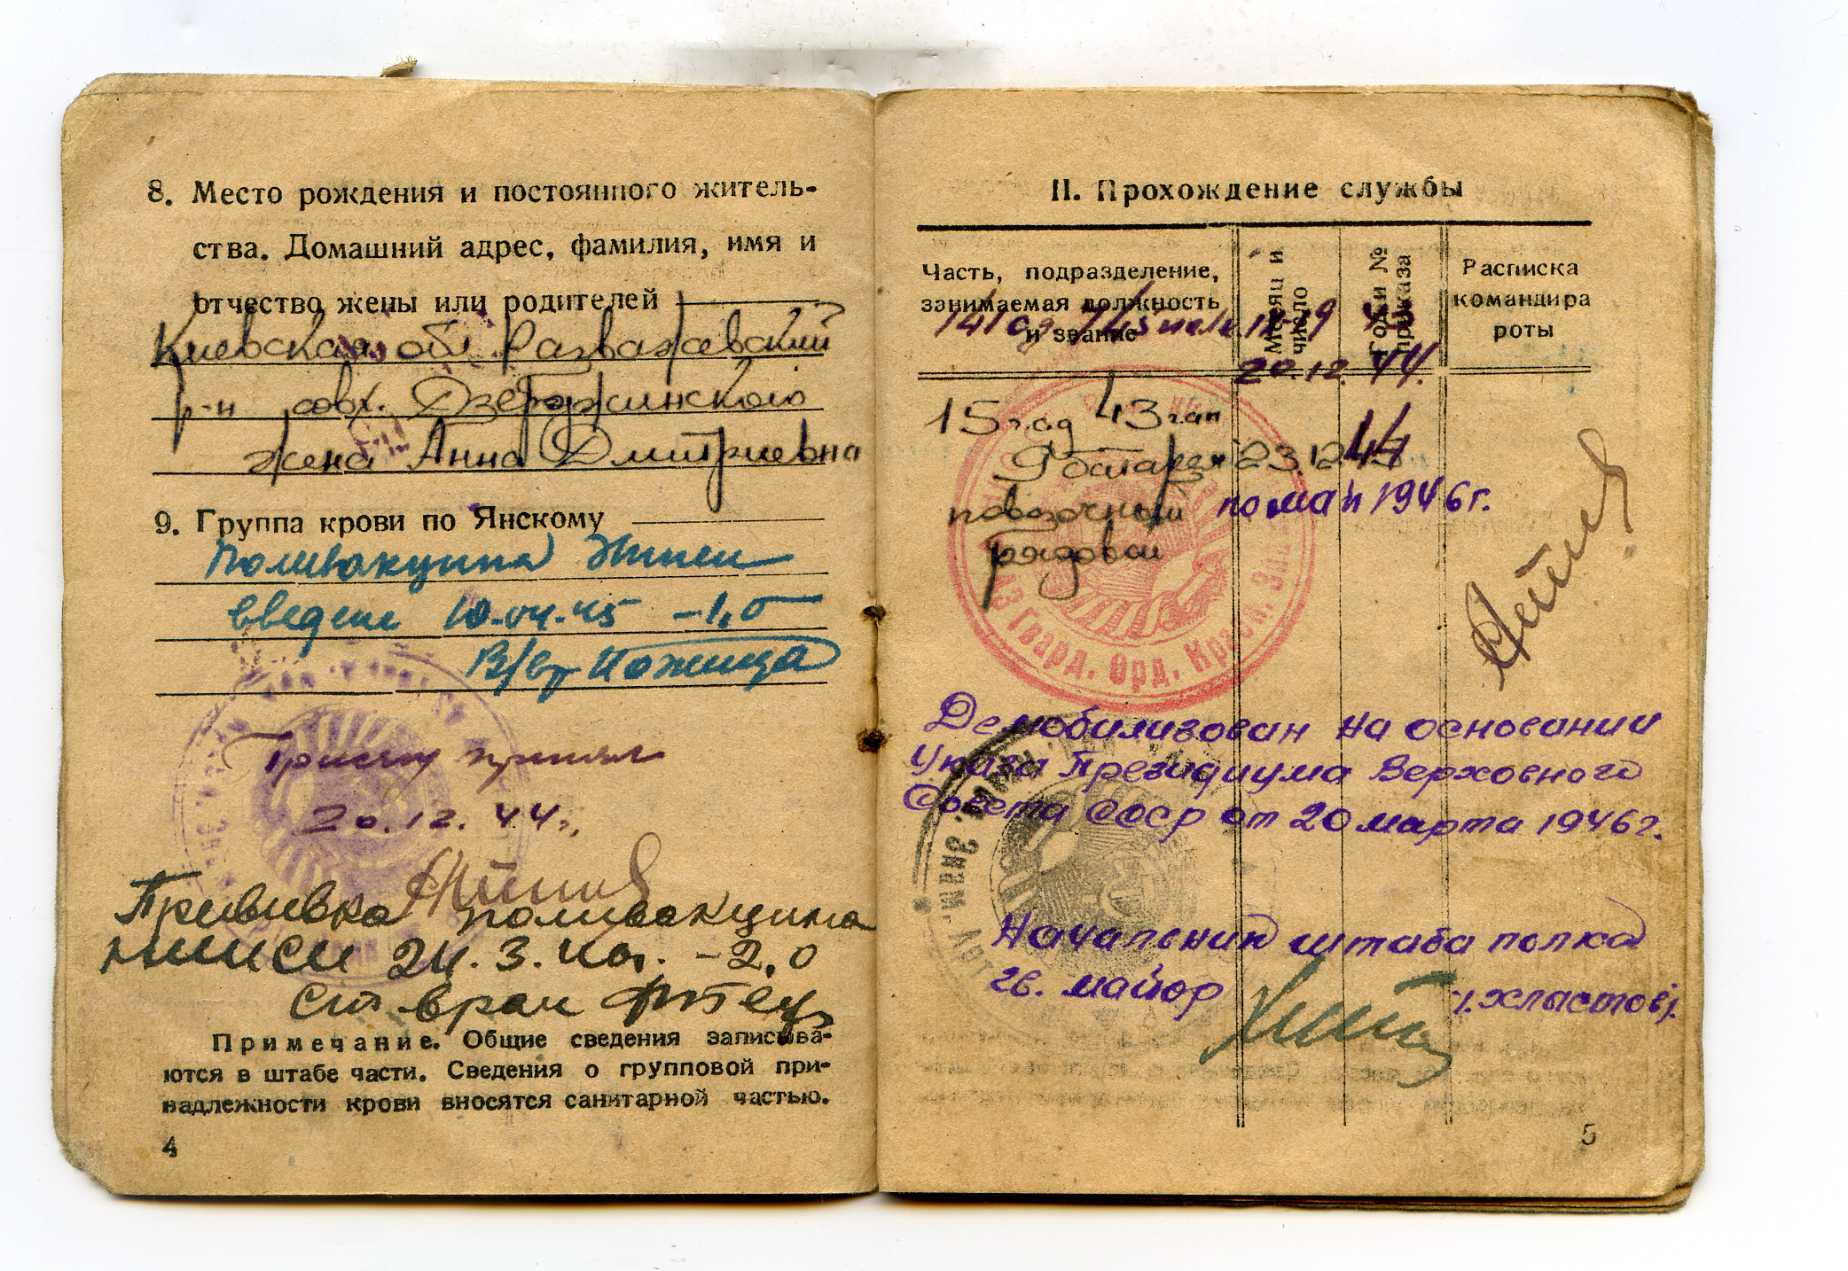 8. Место рождения и постоянного житель-
ства. Домашний адрес, фамилия, имя и
отчество жены или родителей
Киевская обл Розважевский
р-н совх. Дзержинского
жена Анна Дмитриевна
9. Группа крови по Янскому
Поливакцина
введена 10.04.45 -1,0
В/вр
Присягу принял
20.12.44г.
Прививка поливакцина
НИИСИ 24.3.46г. -2,0
ст врач
Примечание. Общие сведения записыва-
ются в штабе части. Сведения о групповой при-
надлежности крови вносятся санитарной частью.
4
II. Прохождение службы
Часть, подразделение,
занимаемая должность
и звание
Месяц и
число
Год и №
приказа
Расписка
командира
роты
20.12. 44.
15 гад 43 гап
9 батарея 23.12.44
повозочный по май 1946г.
рядовой
Гвард. Орд. Красн. Зн
Демобилизован на основании
Указа Президиума Верховного
Совета СССР от 20 марта 1946г.
Начальник штаба полка
гв. майор /Хластов/.
5